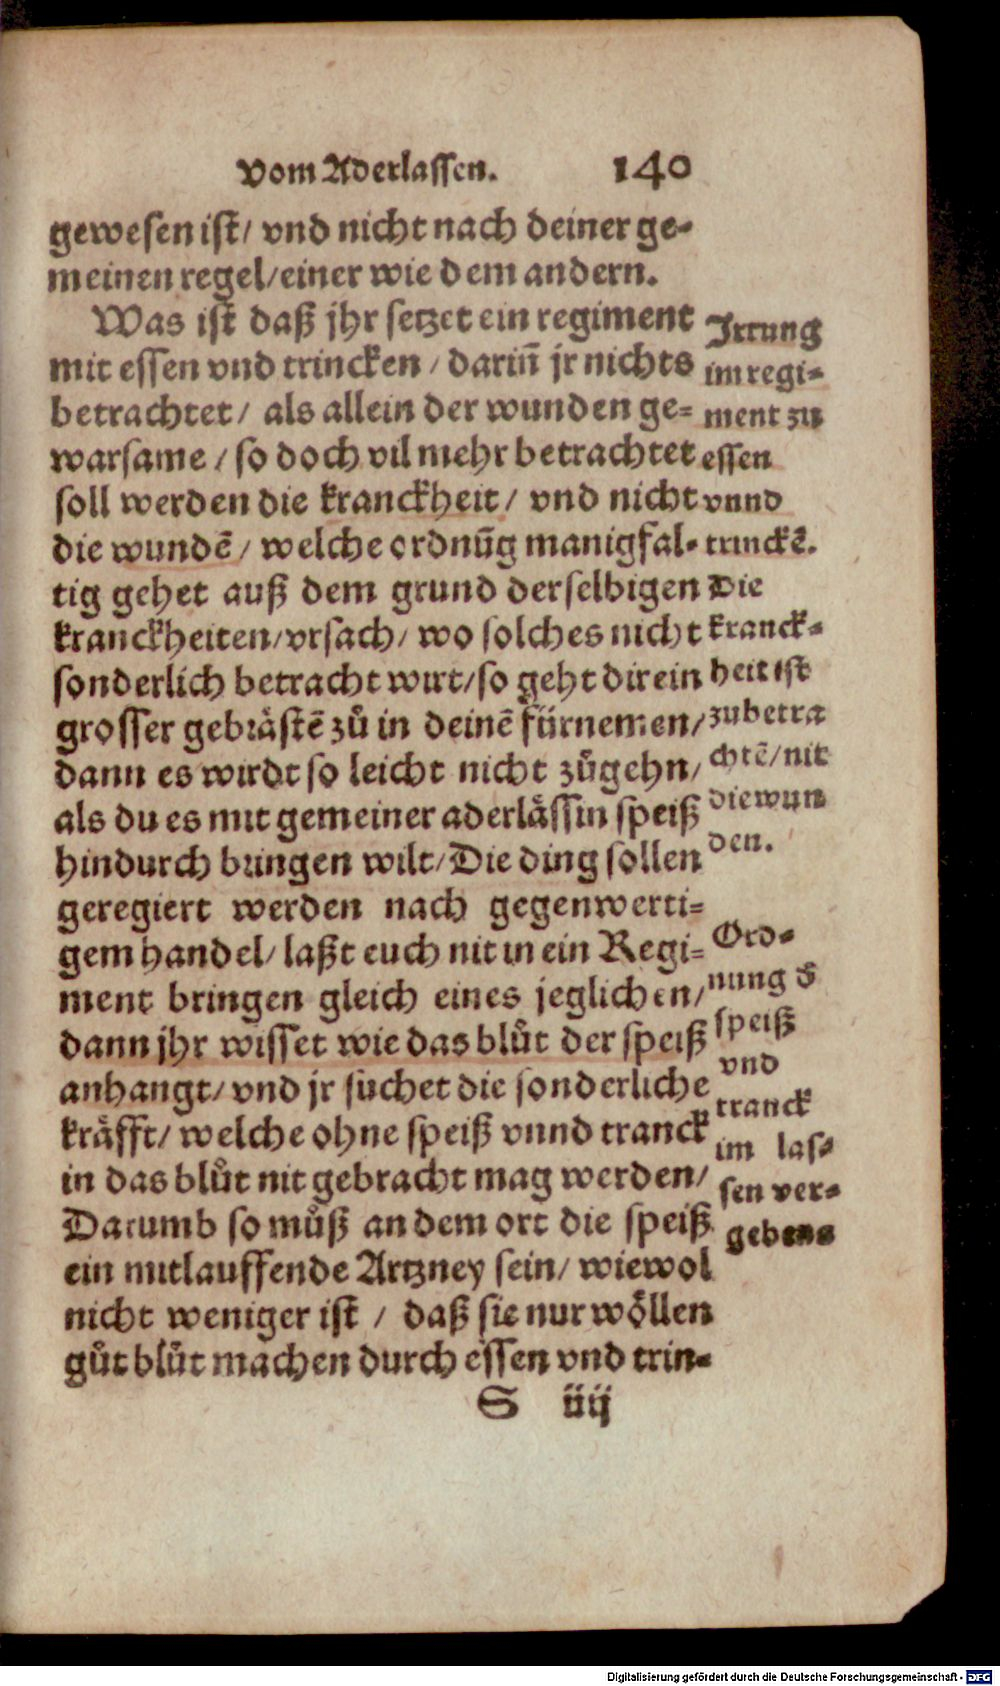 Vom Aderlassen. 140
gewesen ist/ vnd nicht nach deiner ge-
meinen regel/ einer wie dem andern.
Was ist daß jhr setzet ein regiment
mit essen vnd trincken / dariñ jr nichts
betrachtet/ als allein der wunden ge-
warsame / so doch vil mehr betrachtet
soll werden die kranckheit / vnd nicht
die wundẽ / welche ordnũg manigfal-
tig gehet auß dem grund derselbigen
kranckheiten/ vrsach/ wo solches nicht
sonderlich betracht wirt/ so geht dir ein
grosser gebrästẽ zů in deinẽ fürnemen/
dann es wirdt so leicht nicht zůgehn/
als du es mit gemeiner aderlässin speiß
hindurch bringen wilt/ Die ding sollen
geregiert werden nach gegenwerti-
gem handel/ laßt euch nit in ein Regi-
ment bringen gleich eines jeglichen/
dann jhr wisset wie das blůt der speiß
anhangt/ vnd jr suchet die sonderliche
kräfft/ welche ohne speiß vnnd tranck
in das blůt nit gebracht mag werden/
Darumb so můß an dem ort die speiß
ein mitlauffende Artzney sein/ wiewol
nicht weniger ist / daß sie nur wöllen
gůt blůt machen durch essen vnd trin-
S iiij
Irrung
im regi-
ment zu
essen
vnnd
trinckẽ.
Die
kranck-
heit ist
zubetra
chtẽ/ nit
die wun
den.
Ord-
nung d̕
speiß
vnd
tranck
im las-
sen ver-
gebens
Digitalisierung gefördert durch die Deutsche Forschungsgemeinschaft - DFG